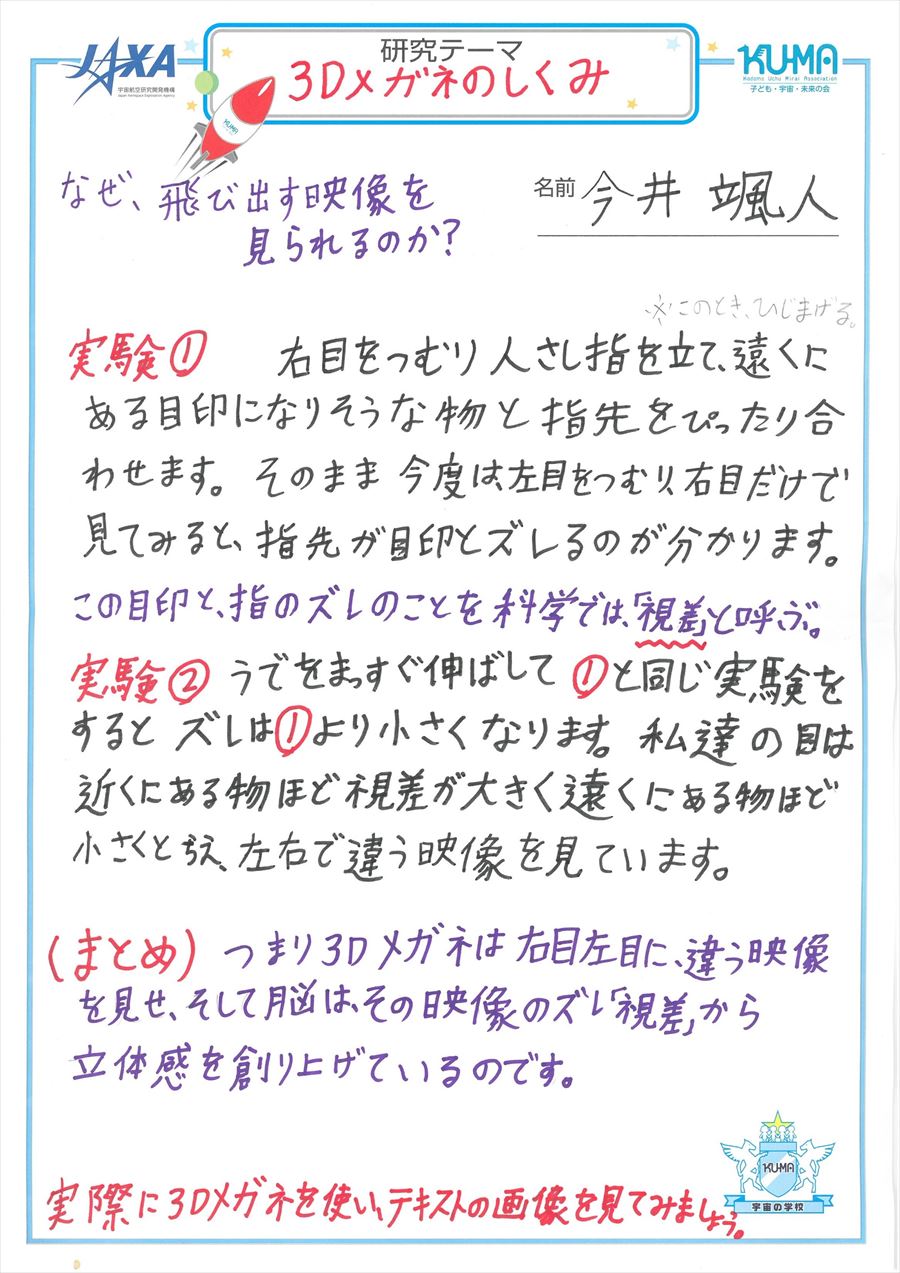 JAXA
宇宙航空研究開発機構
Japan Aerospace Exploration Agency
研究テーマ
3Dメガネのしくみ
KUMA
KUMA
Kodomo Uchu Mirai Association
子ども・宇宙・未来の会
なぜ、飛び出す映像を
見られるのか?
名前 今井 颯人
※このとき、ひじまげる。
実験① 右目をつむり人さし指を立て、遠くに
ある目印になりそうな物と指先をぴったり合
わせます。そのまま今度は、左目をつむり、右目だけで
見てみると、指先が目印とズレるのが分かります。
この目印と、指のズレのことを科学では、「視差」と呼ぶ。
実験② うでをまっすぐ伸ばして①と同じ実験を
するとズレは①より小さくなります。私達の目は
近くにある物ほど視差が大きく遠くにある物ほど
小さくとらえ、左右で違う映像を見ています。
(まとめ) つまり3Dメガネは右目左目に、違う映像
を見せ、そして脳は、その映像のズレ「視差」から
立体感を創り上げているのです。
KUMA
宇宙の学校
実際に3Dメガネを使い、テキストの画像を見てみましょう。